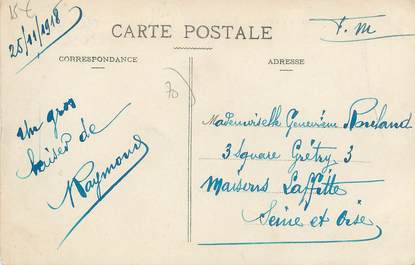 25/11/1918
CARTE POSTALE
F. M
CORRESPONDANCE
ADRESSE
70
Un gros
baiser de
Raymond
Mademoiselle Geneviève
3 Square Grétry 3
Maisons Laffitte
Seine et Oise